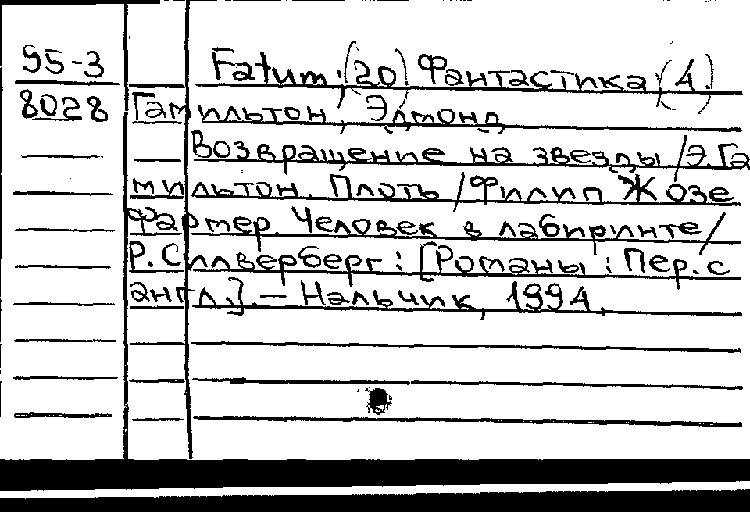 95-3 Fatum; (20) Фантастика; (4)
8028 Гамильтон, Эдмонд
Возвращение на звезды / Э. Га
мильтон. Плоть / Филип Жозе
Фармер. Человек в лабиринте /
Р. Силверберг: [Романы: Пер. с
англ.]. – Нальчик, 1994.